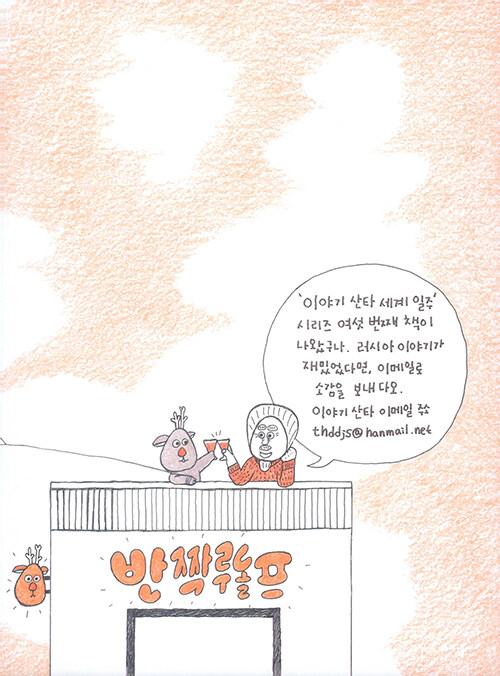 '이야기 산타 세계 일주'
시리즈 여섯 번째 책이
나왔구나. 러시아 이야기가
재밌었다면, 이메일로
소감을 보내 다오.
이야기 산타 이메일 주소
thddjs@hanmail.net
반짝루돌프